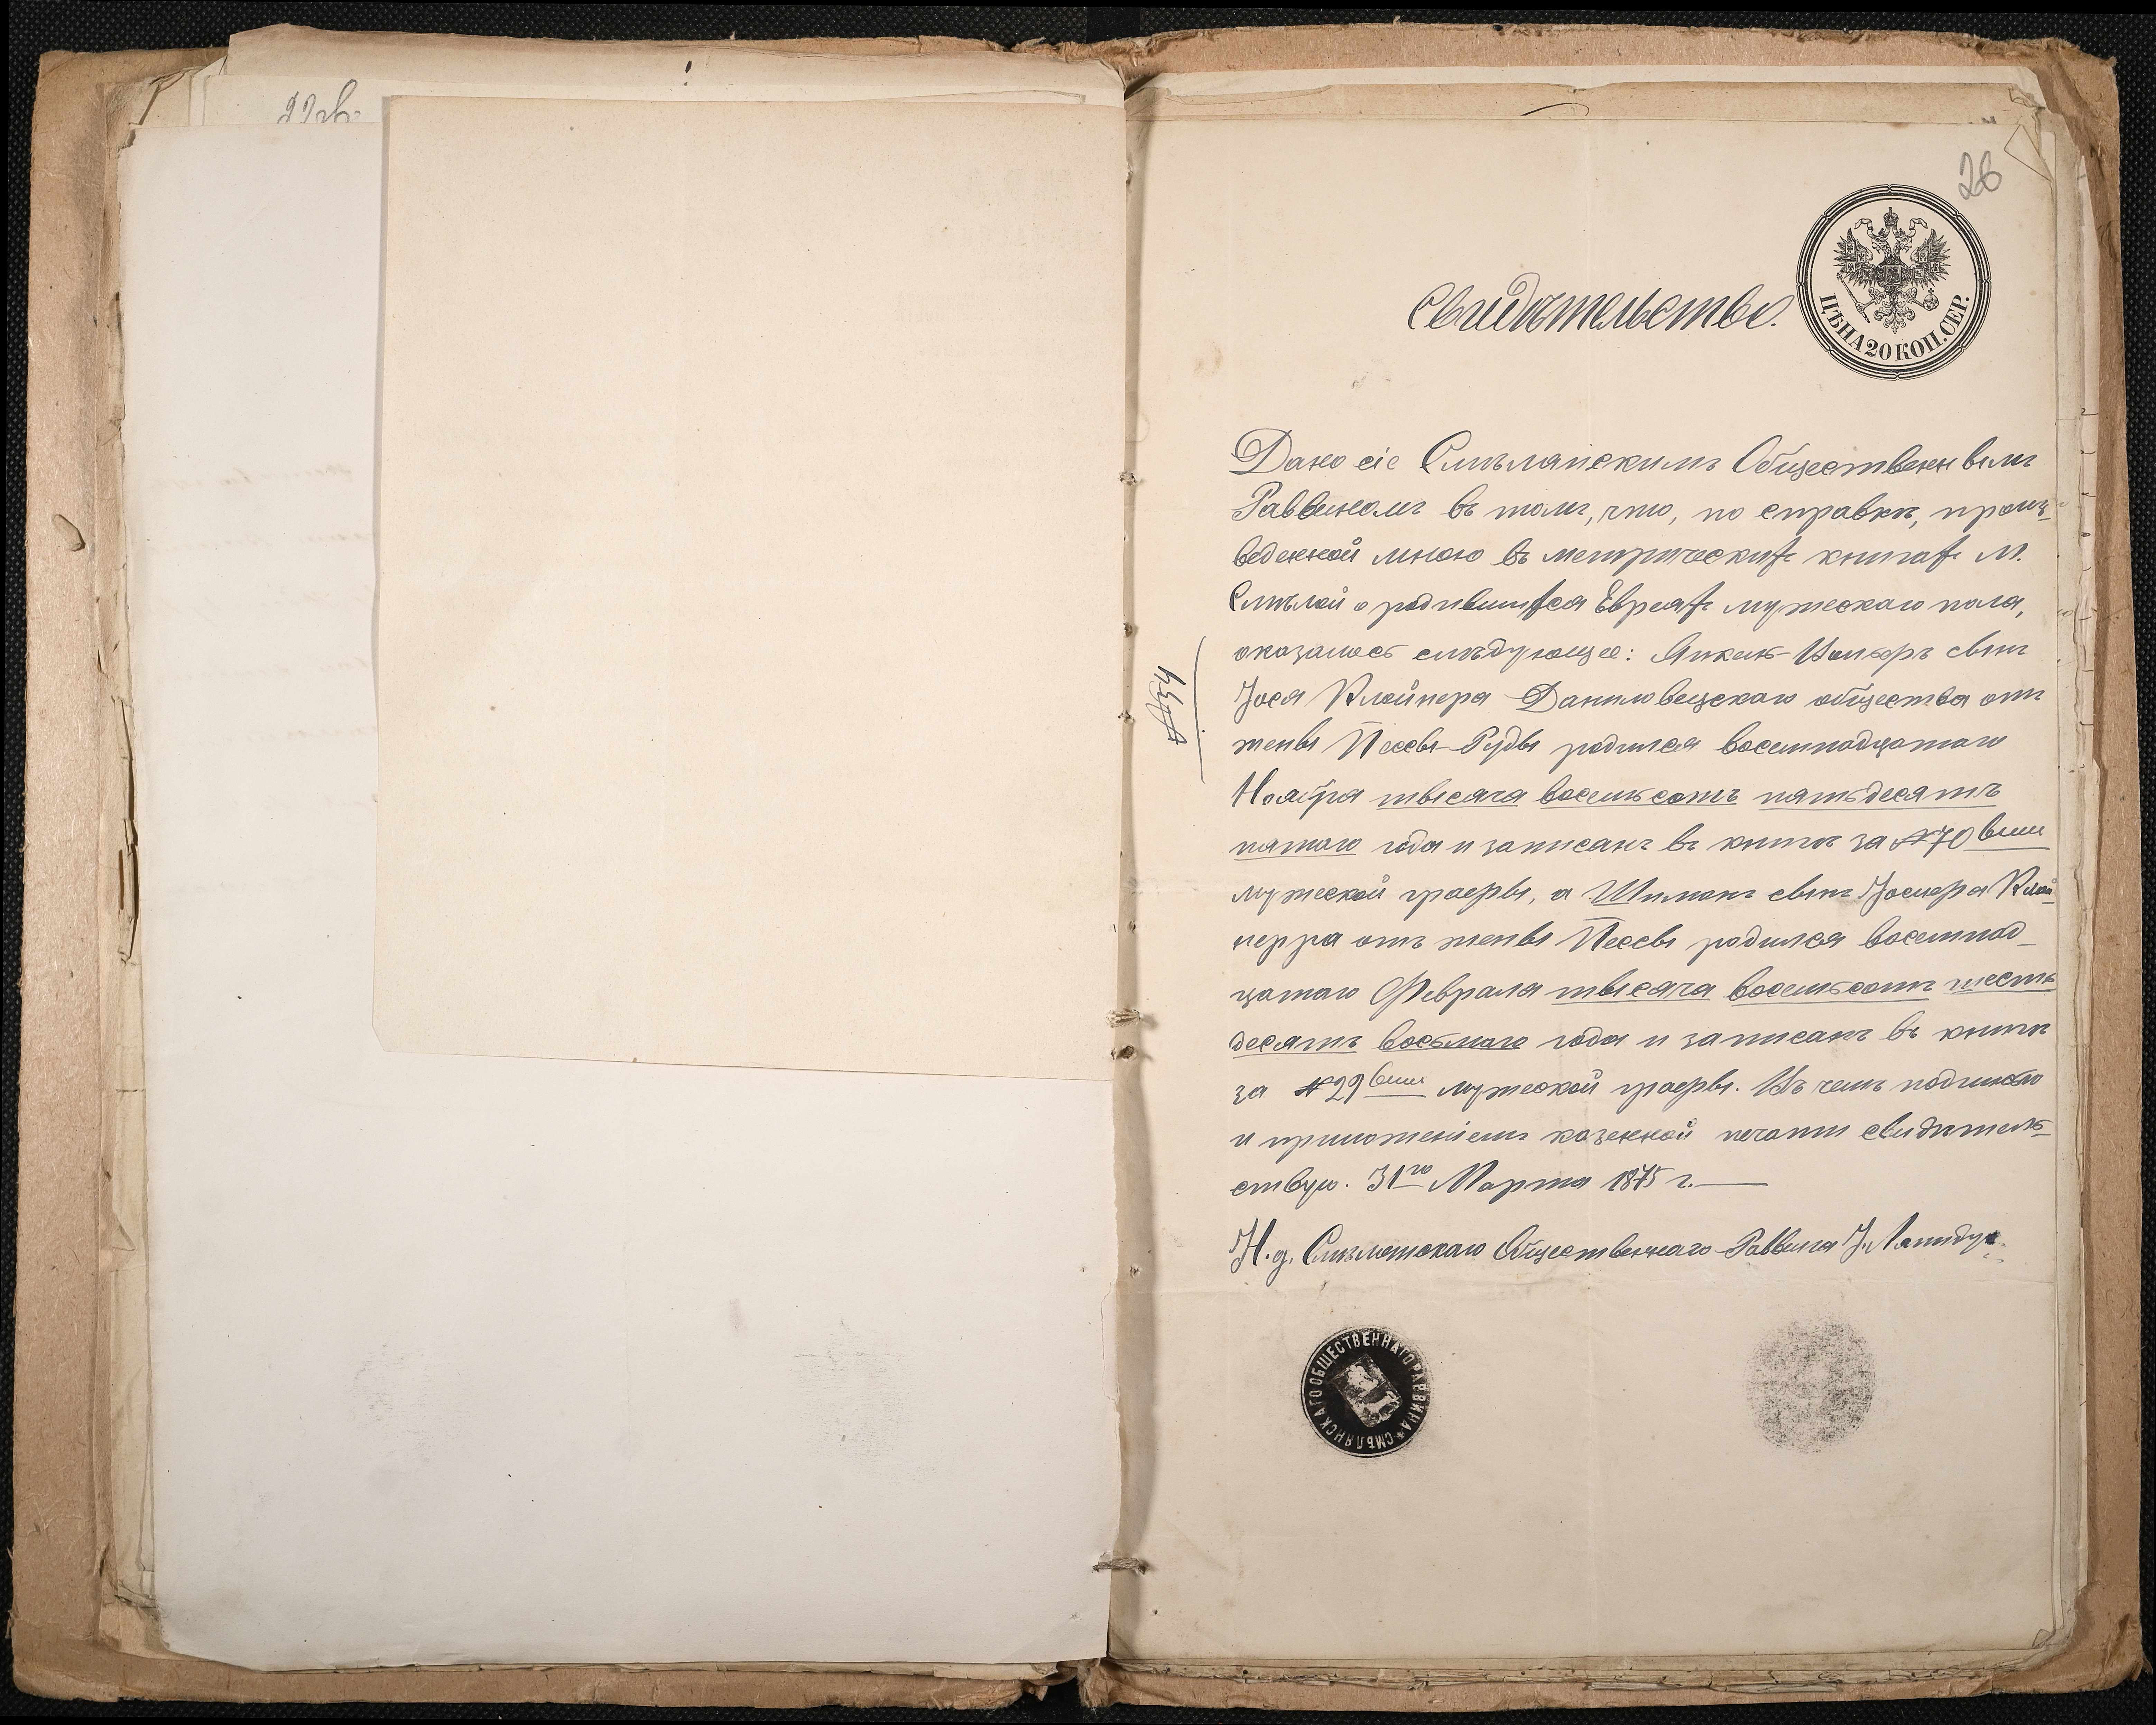 26
ЦѢНА 20 КОП. СЕР.
Свидѣтельство.
Дано сіе Смѣлянскимъ Общественнымъ
Раввиномъ въ томъ, что, по справкѣ, произ-
веденной мною въ метрическихъ книгахъ м.
Смѣлой о родившихся Евреяхъ мужескаго пола,
оказалось слѣдующее: Янкель- сынъ
Іося Клейнера Даниловецскаго общества отъ
жены Песи-Руды родился восемнадцатаго
Ноября тысяча восемьсотъ пятьдесятъ
пятаго года и записанъ въ книгѣ за №70вымъ
мужеской графы, а Шимонъ сынъ Іосифа Клей-
нерра отъ жены Пессы родился восемнад-
цатаго Февраля тысяча восемьсотъ шесть
десятъ восьмаго года и записанъ въ книгѣ
за №29вымъ мужеской графы. Въ чемъ подписью
и приложеніемъ казенной печати свидѣтель-
ствую. 31го Марта 1875 г.
И. д. Смѣлянскаго Общественнаго Раввина І. Лапидус
СМѢЛЯНСКАГО ОБЩЕСТВЕННАГО РАВВИНА